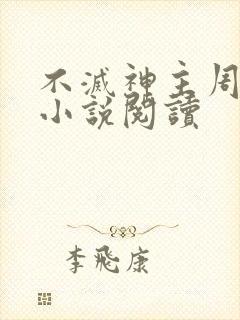 不滅神主周
小說閱讀
李飛康